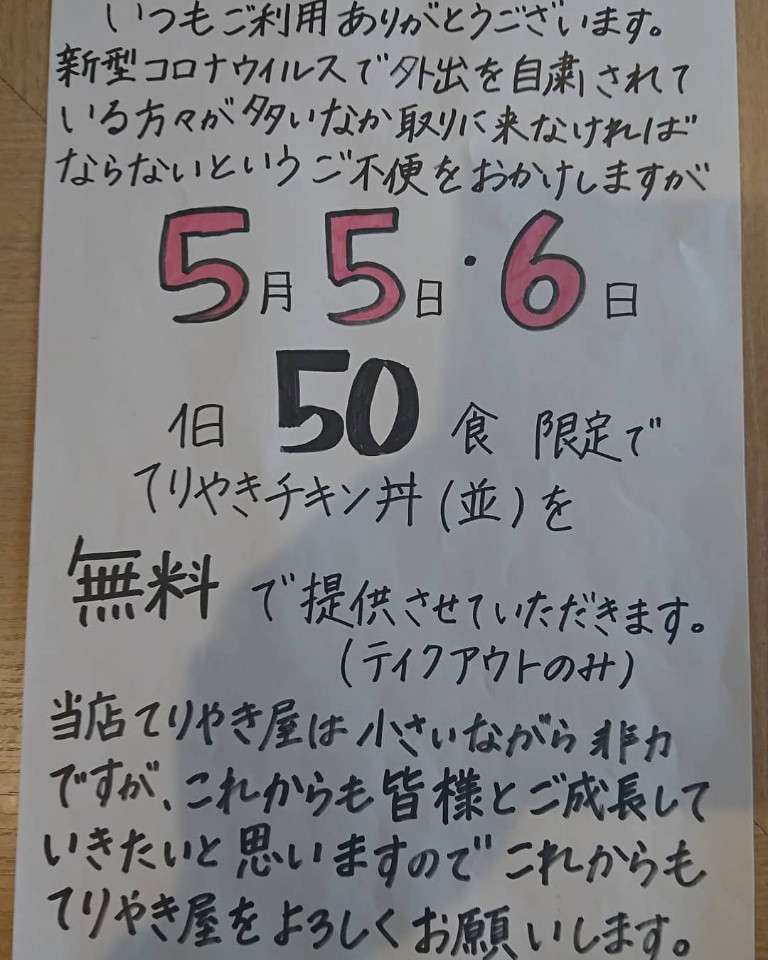 いつもご利用ありがとうございます。
新型コロナウイルスで外出を自粛されて
いる方々が多いなか取りに来なければ
ならないというご不便をおかけしますが
5月5日・6日
1日 50 食 限定で
てりやきチキン丼(並)を
無料で提供させていただきます。
(テイクアウトのみ)
当店てりやき屋は小さいながら非力
ですが、これからも皆様とご成長して
いきたいと思いますのでこれからも
てりやき屋をよろしくお願いします。